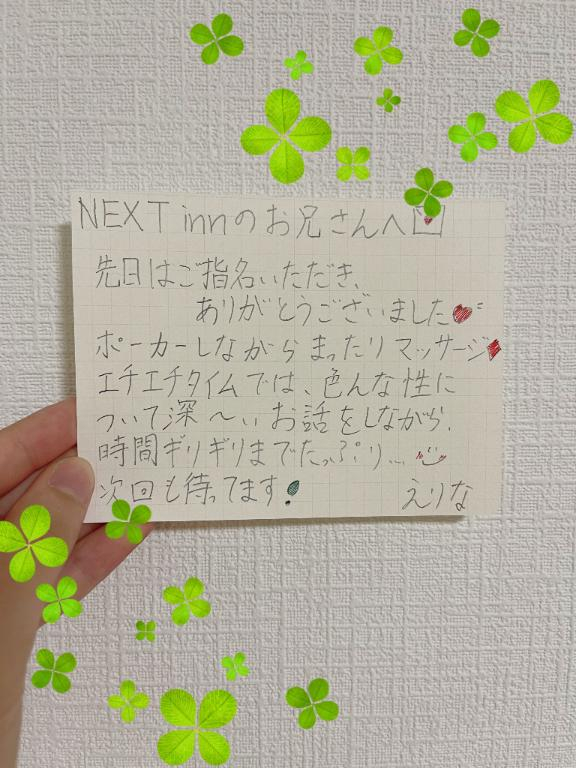 NEXT innのお兄さんへ
先日はご指名いただき、
ありがとうございました
ポーカーしながらまったりマッサージ
エチエチタイムでは、色んな性に
ついて深〜いお話をしながら、
時間ギリギリまでたっぷり...
次回も待ってます!
えりな